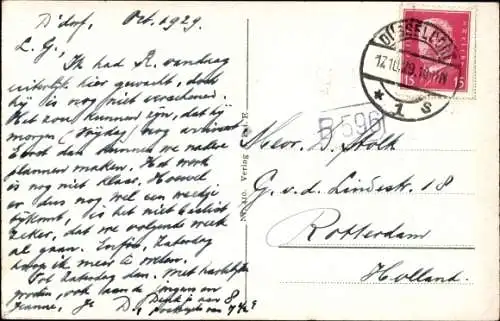 D'dorf, Oct. 1929.
L. G.,
Ik had R. vandaag
eigenlijk hier gewacht, doch
hij is nog niet verschenen.
Het zou kunnen zijn, dat hij
morgen (Vrijdag) nog arriveert
Eerst dan kunnen we nadere
plannen maken. Het werk
is nog niet klaar. Hoewel
er dus nog wel een weekje
bijkomt, is het niet
zeker, dat we volgende week
al gaan. Enfin, Zaterdag
hoop ik meer te weten.
Tot Zaterdag dan. Met hartelijke
groeten, ook aan de jongens en
Hanne, je D. Denk je aan 8
van 7 1/2 ?
Verlag
DÜSSELDORF
17.10.29.
* 1 s
15 15
B 596
Mevr. D. Stolk
G. v. d. Lindestr. 18
Rotterdam
Holland.